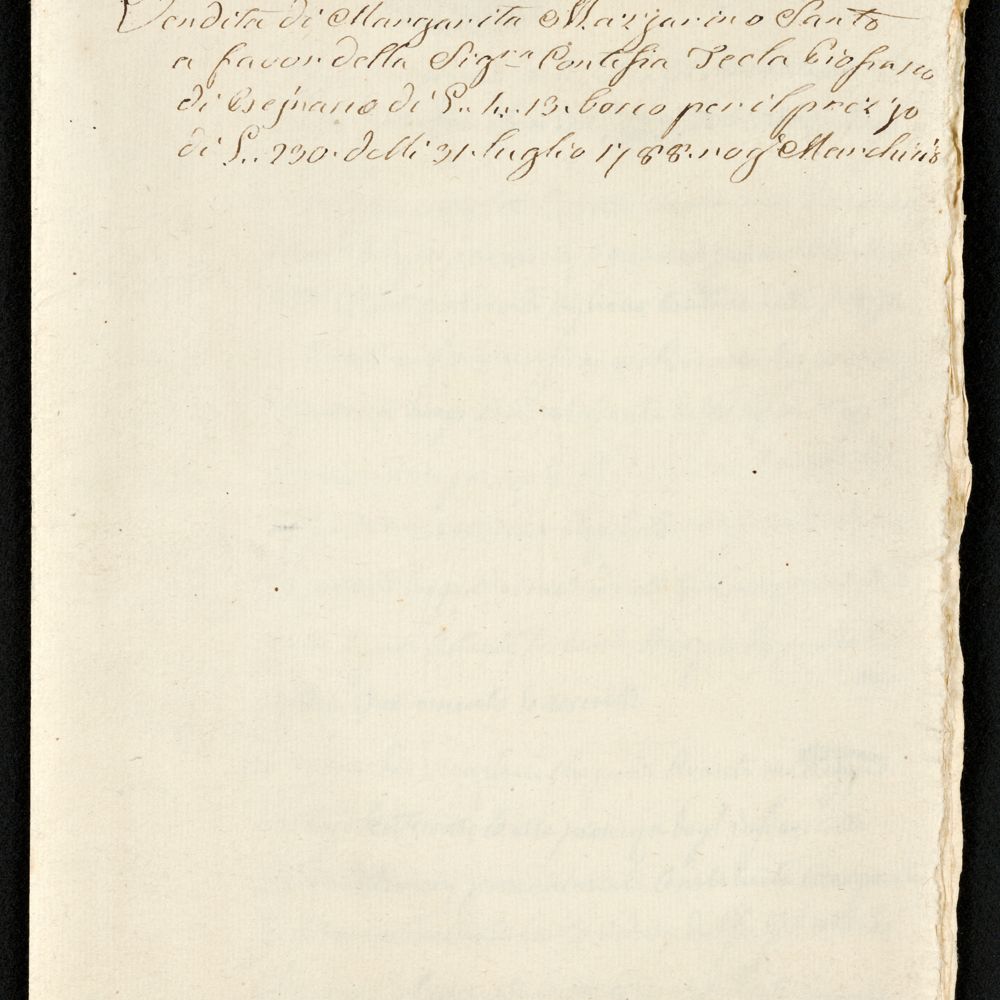 Vendita di Margarita Mazzarino Santo
a favor della Sig.ra Contessa Tecla
di di L. h. 13. bosco per il prezzo
di L. 230. delli 31. luglio 1788. rog.